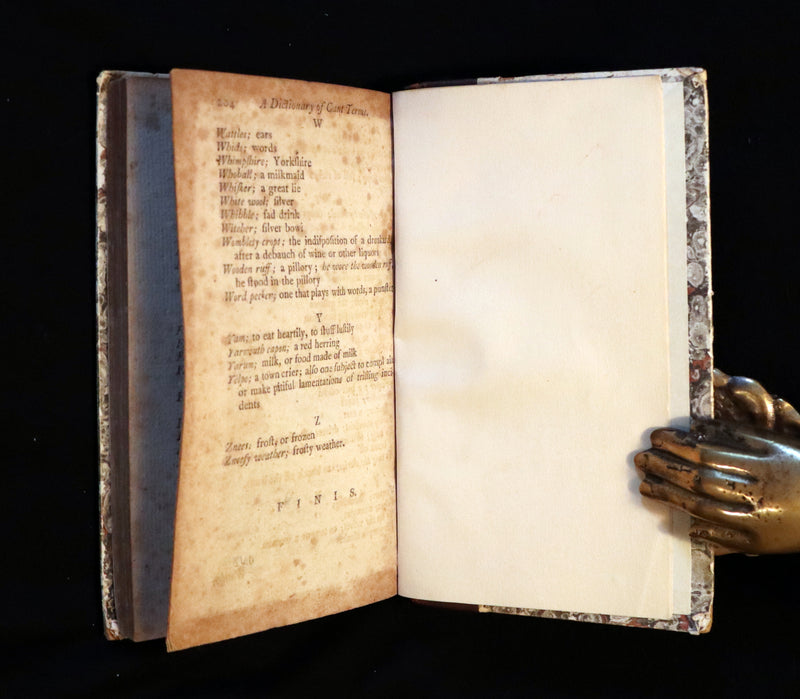 204 A Dictionary of Cant Terms.
W
Wattles; ears
Whids; words
Whimpshire; Yorkſhire
Whoball; a milkmaid
Whiſker; a great lie
White wool; ſilver
Whibble; ſad drink
Witcher; ſilver bowl
Womblety cropt; the indiſpoſition of a
after a debauch of wine or other liquors
Wooden ruff; a pillory; he wore the wooden ruff,
he ſtood in the pillory
Word pecker; one that plays with words, a punſter
Y
Yam; to eat heartily, to ſtuff luſtily
Yarmouth capon; a red herring
Yarum; milk, or food made of milk
Yelpe; a town crier; alſo one ſubject to
or make pitiful lamentations of trifling inci
dents
Z
Znees; froſt, or frozen
Zneeſy weather; froſty weather.
FINIS.